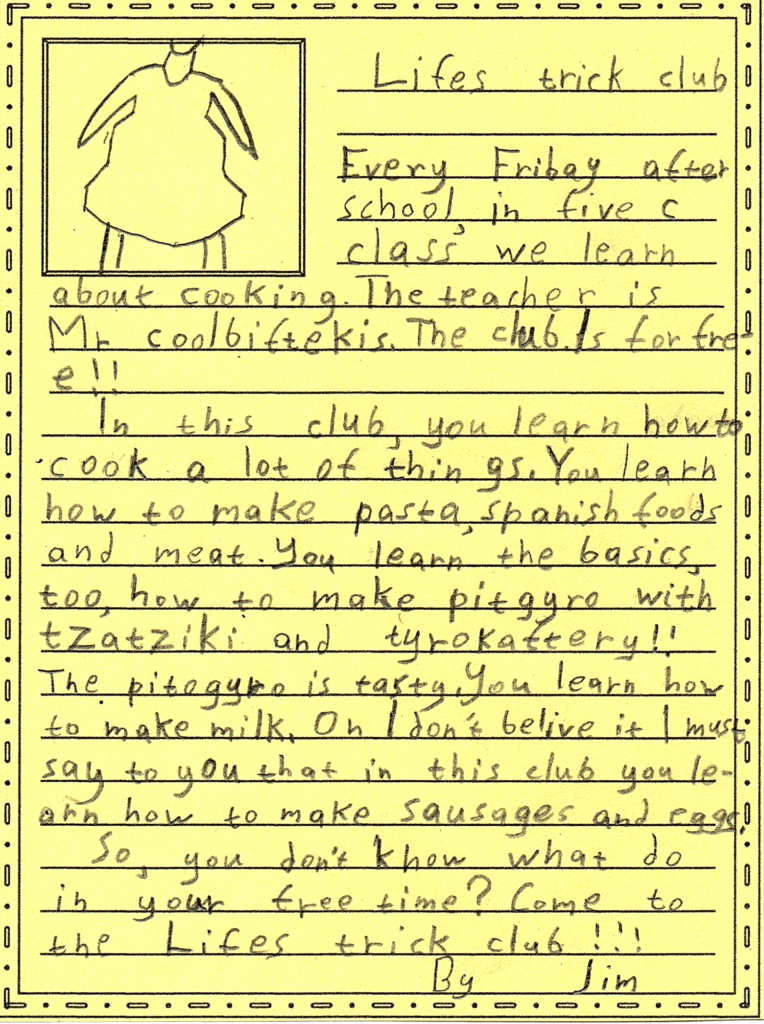 Lifes trick club
Every Fribay after
school, in five c
class we learn
about cooking. The teacher is
Mr coolbiftekis. The club. Is for fre-
e!!
In this club, you learn how to
cook a lot of things. You learn
how to make pasta, spanish foods
and meat. You learn the basics,
too, how to make pitgyro with
tzatziki and tyrokaftery!!
The pitogyro is tasty. You learn how
to make milk. Oh I don't belive it I must
say to you that in this club you le-
arn how to make sausages and eggs!
So, you don't know what do
in your free time? Come to
the Lifes trick club!!!
By Jim